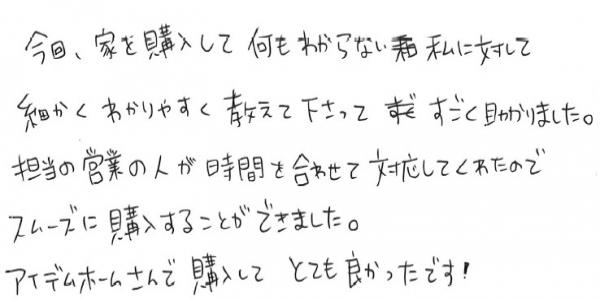 今回、家を購入して何もわからない私に対して
細かくわかりやすく教えて下さってすごく助かりました。
担当の営業の人が時間を合わせて対応してくれたので
スムーズに購入することができました。
アイデムホームさんで購入してとても良かったです!